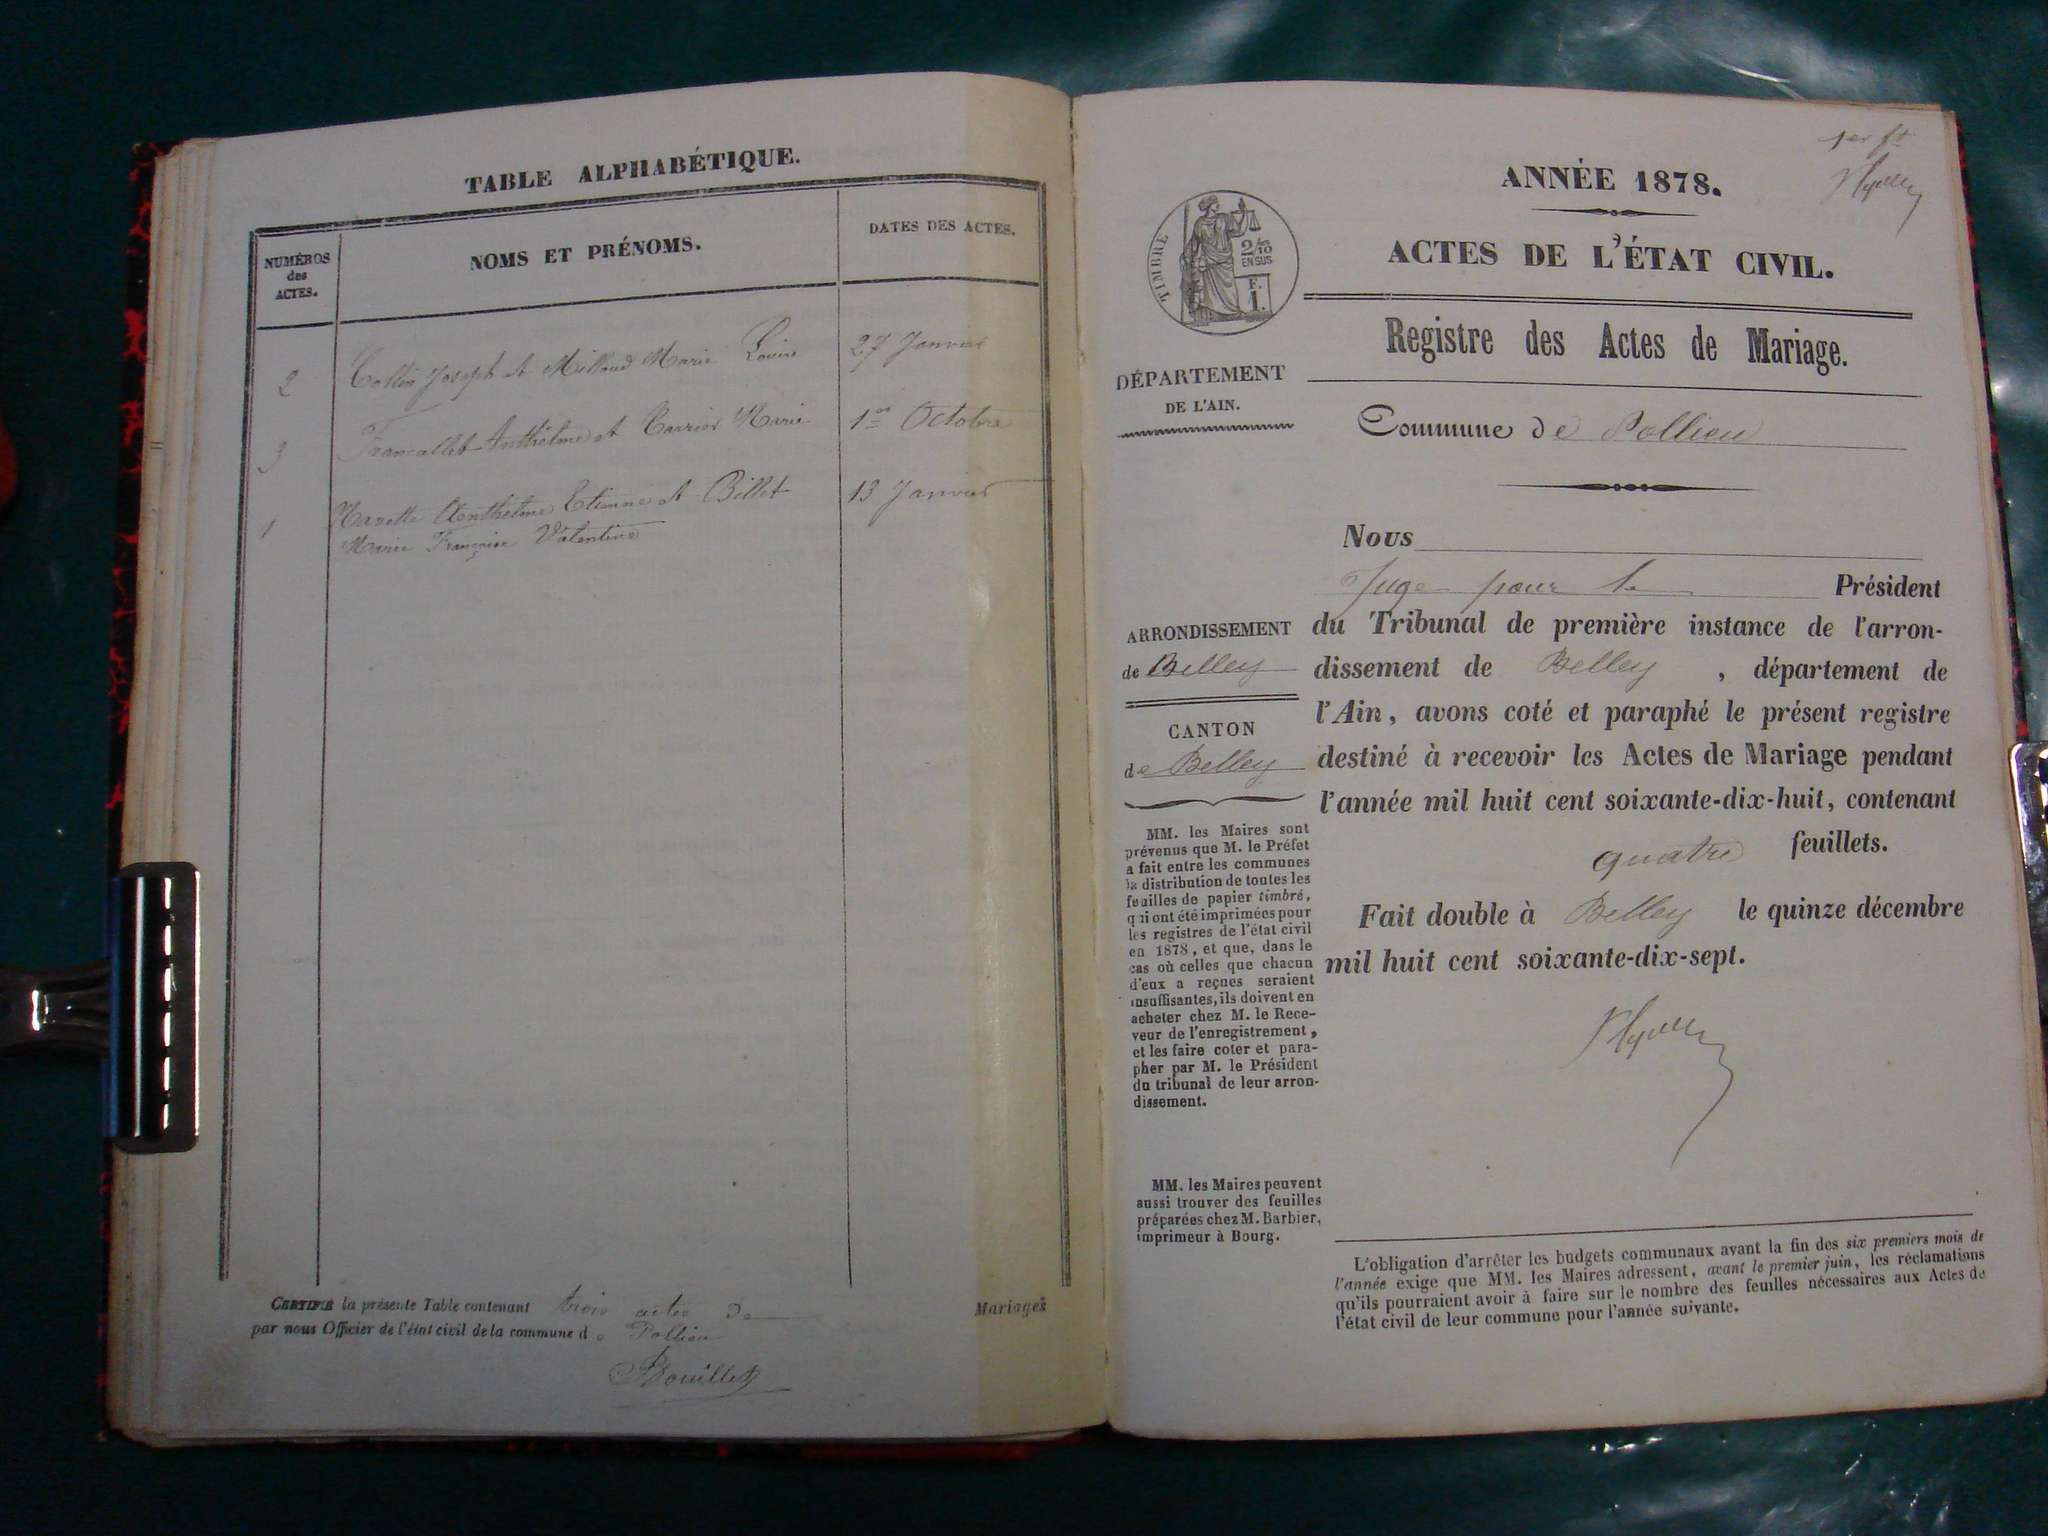 TABLE ALPHABÉTIQUE.
NUMÉROS
des
ACTES.
NOMS ET PRÉNOMS.
DATES DES ACTES.
2 Collin Joseph et Millaud Marie Louise 27 Janvier
3 Francallet Anthelme et Carrier Marie 1er Octobre
1 Navette Anthelme Etienne et Billet 13 Janvier
Marie Françoise Valentine
CERTIFIÉ la présente Table contenant trois actes de Mariages
par nous Officier de l'état civil de la commune de Pollieu
Bouillet
1er ft
ANNÉE 1878.
ACTES DE L'ÉTAT CIVIL.
TIMBRE
2/10
EN SUS
F.
1.
Registre des Actes de Mariage.
DÉPARTEMENT
DE L'AIN.
Commune de Pollieu
Nous
Juge pour le Président
du Tribunal de première instance de l'arron-
dissement de Belley, département de
l'Ain, avons coté et paraphé le présent registre
destiné à recevoir les Actes de Mariage pendant
l'année mil huit cent soixante-dix-huit, contenant
quatre feuillets.
Fait double à Belley le quinze décembre
mil huit cent soixante-dix-sept.
ARRONDISSEMENT
de Belley
CANTON
de Belley
MM. les Maires sont
prévenus que M. le Préfet
a fait entre les communes
la distribution de toutes les
feuilles de papier timbré,
qui ont été imprimées pour
les registres de l'état civil
en 1878, et que, dans le
cas où celles que chacun
d'eux a reçues seraient
insuffisantes, ils doivent en
acheter chez M. le Rece-
veur de l'enregistrement,
et les faire coter et para-
pher par M. le Président
du tribunal de leur arron-
dissement.
MM. les Maires peuvent
aussi trouver des feuilles
préparées chez M. Barbier,
imprimeur à Bourg.
L'obligation d'arrêter les budgets communaux avant la fin des six premiers mois de
l'année exige que MM. les Maires adressent, avant le premier juin, les réclamations
qu'ils pourraient avoir à faire sur le nombre des feuilles nécessaires aux Actes de
l'état civil de leur commune pour l'année suivante.